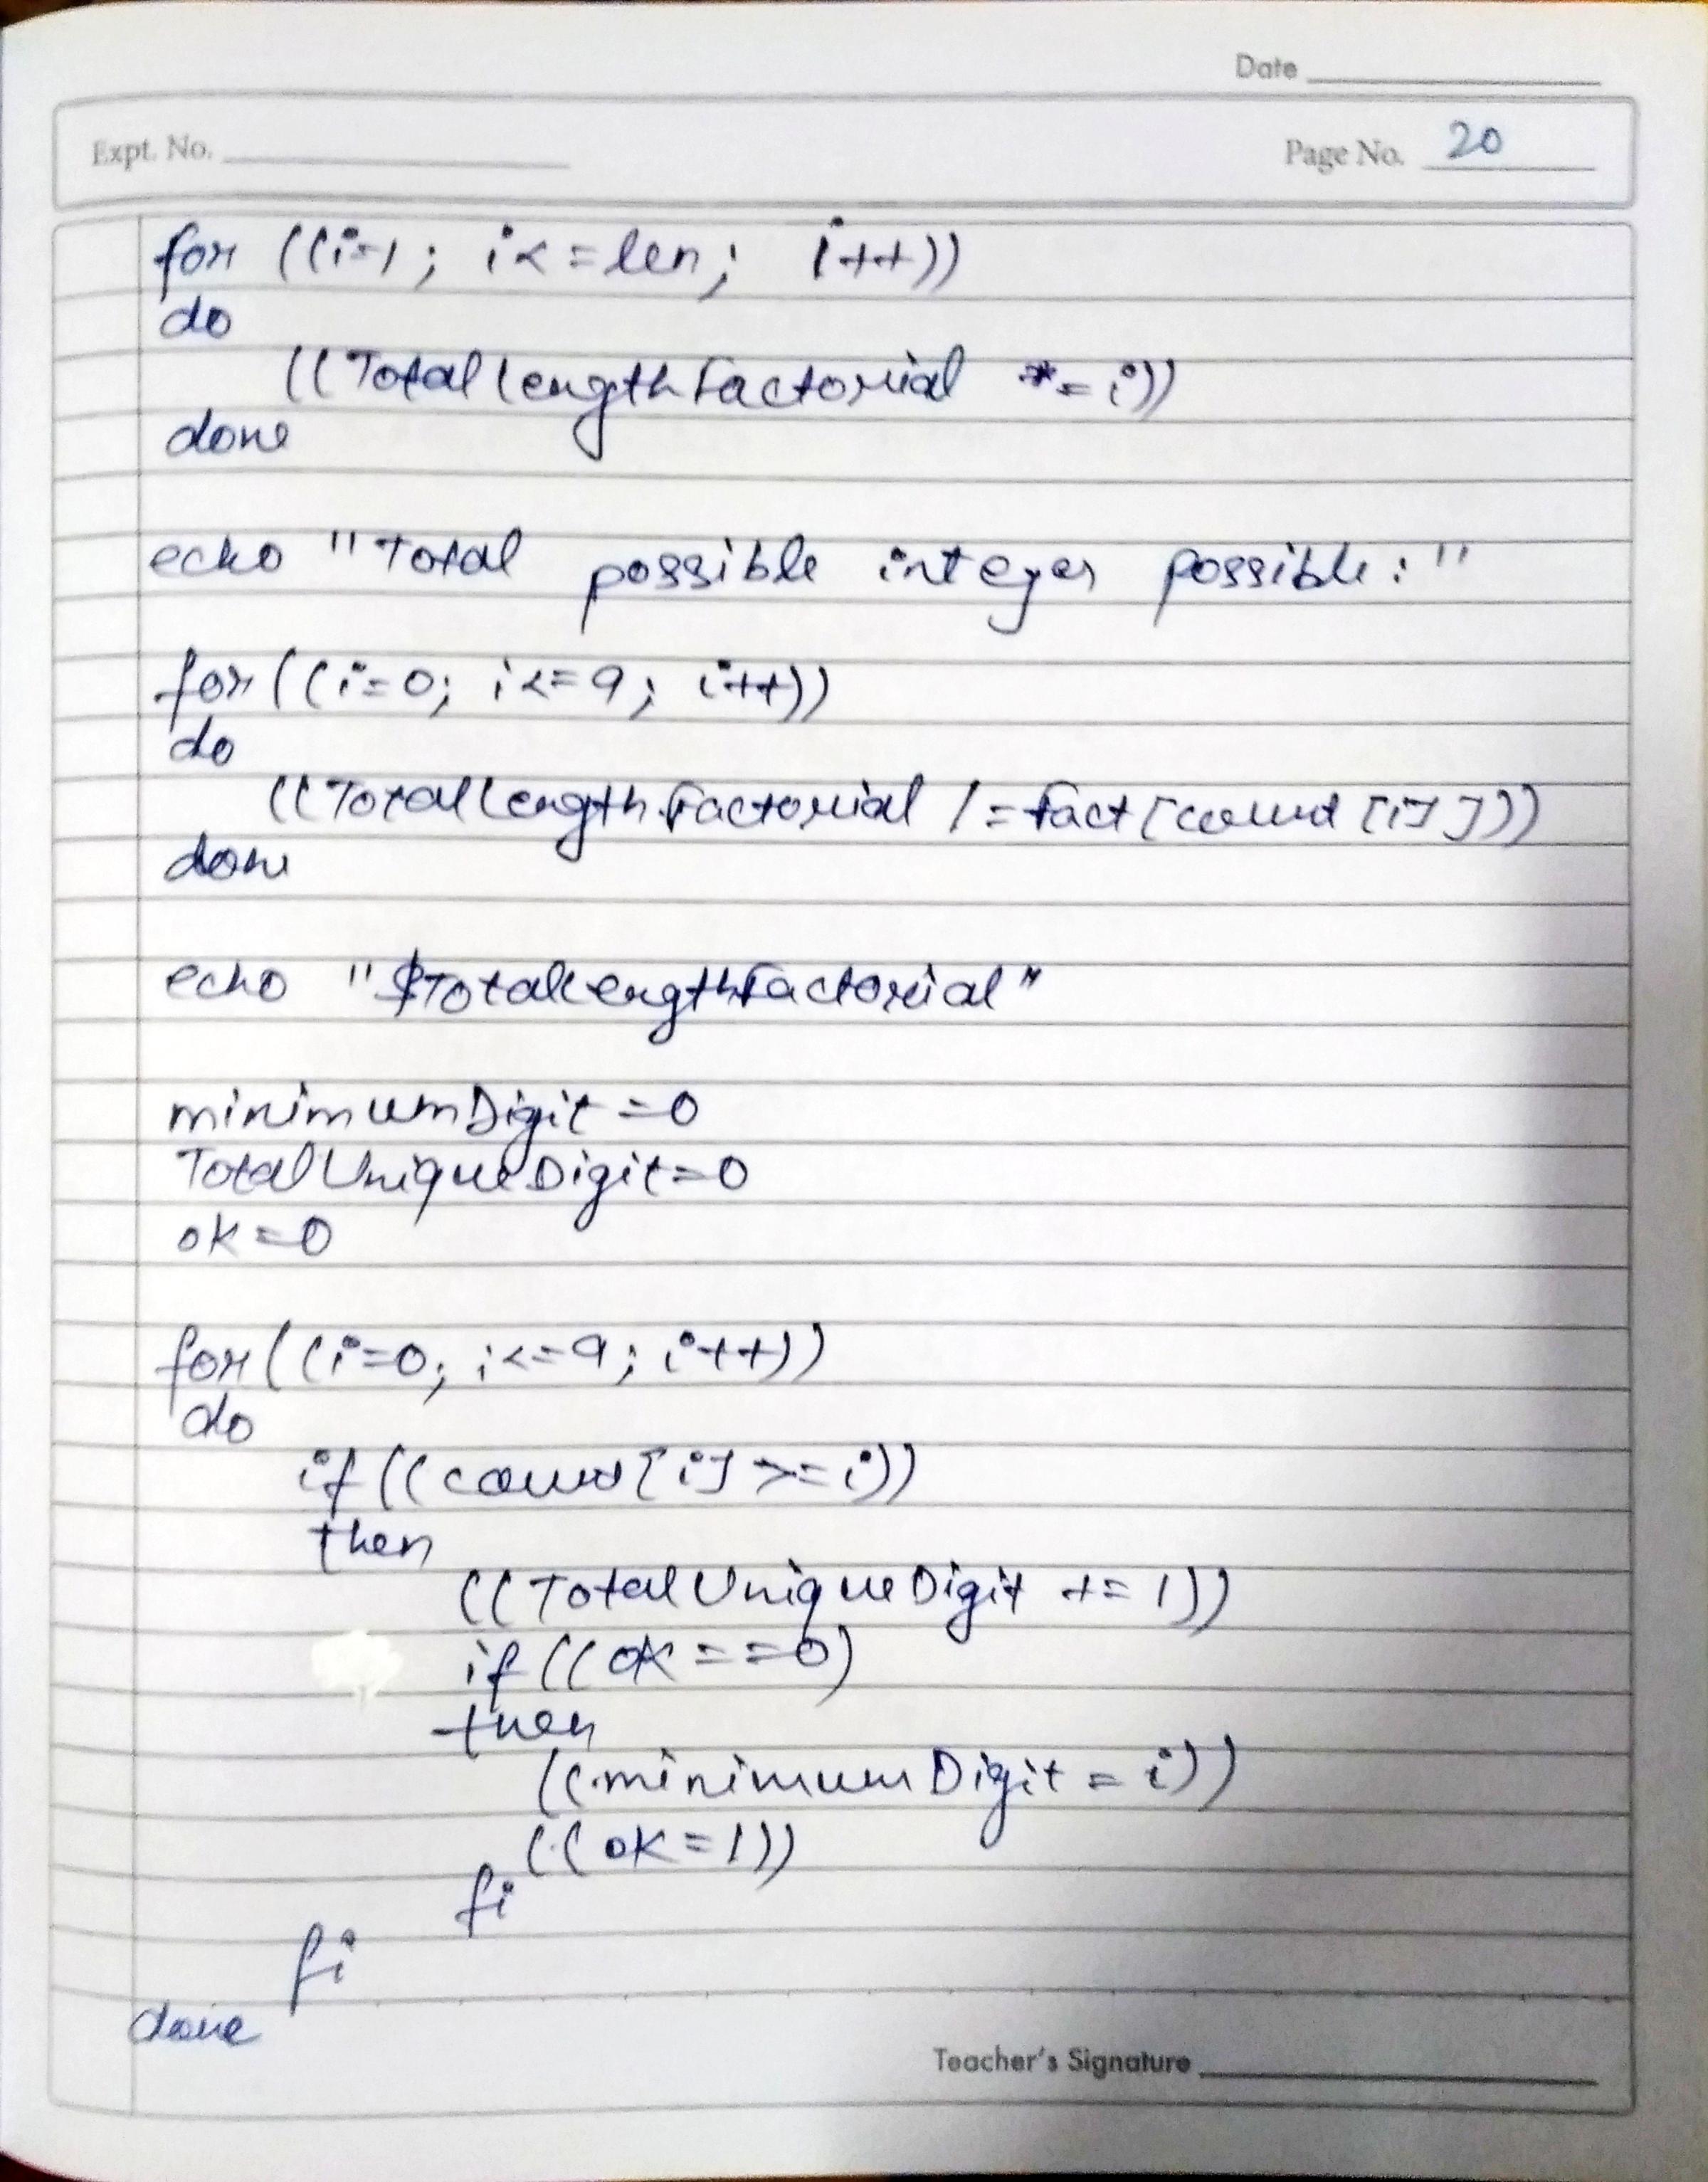 Date
Expt. No.
Page No. 20
for ((i=1; i<=len; i++))
do
((TotallengthFactorial *= i))
done
echo "Total possible integer possible:"
for((i=0; i<=9; i++))
do
((TotalLengthFactorial /=fact[count[i]]))
done
echo "$TotalLengthFactorial"
minimumDigit=0
TotalUniqueDigit=0
ok=0
for((i=0; i<=9; i++))
do
if((count[i]>=i))
then
((TotalUniqueDigit += 1))
if((ok==0)
then
((minimumDigit=i))
((ok=1))
fi
fi
done
Teacher's Signature